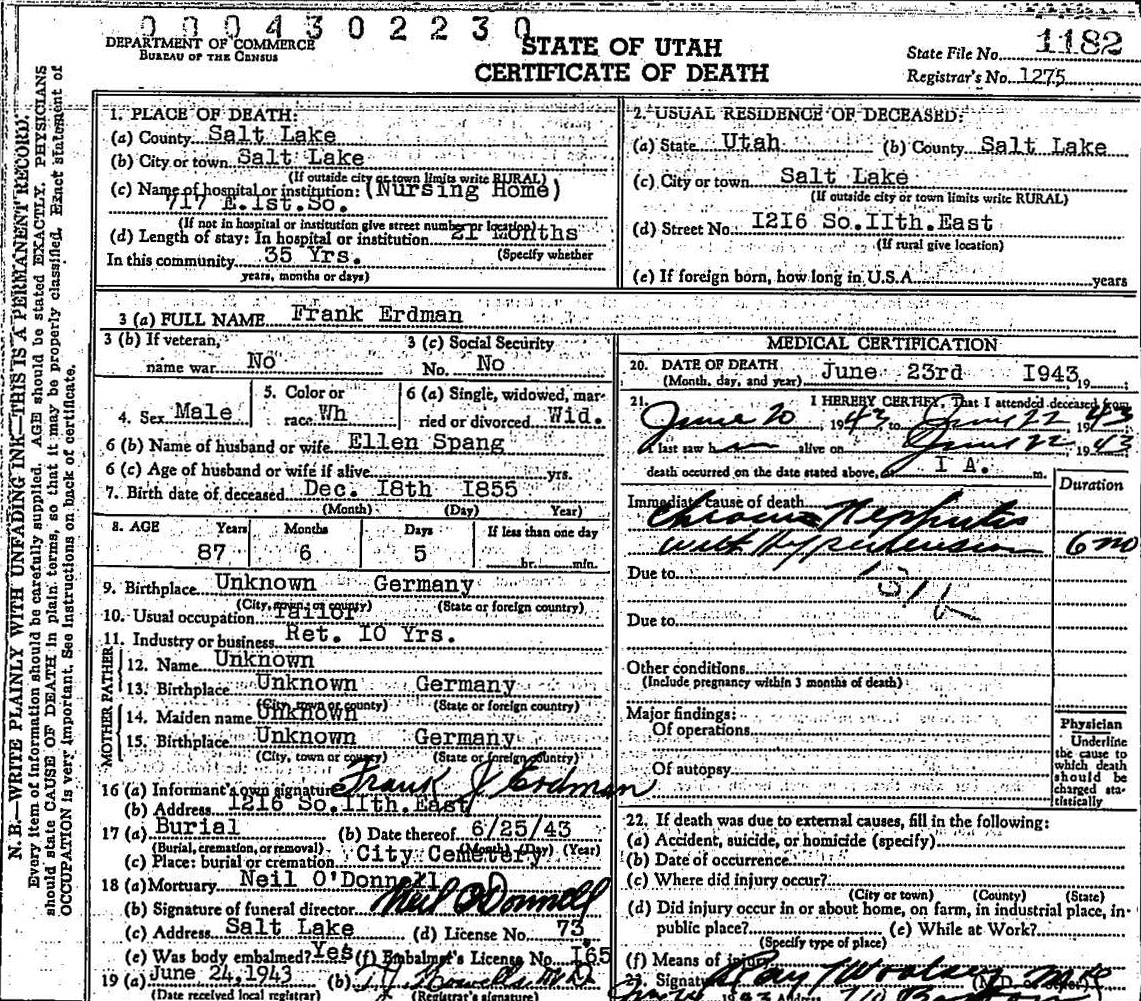 0004302230
DEPARTMENT OF COMMERCE
BUREAU OF THE CENSUS
STATE OF UTAH
CERTIFICATE OF DEATH
State File No. 1182
Registrar's No. 1275
N. B.—WRITE PLAINLY WITH UNFADING INK—THIS IS A PERMANENT RECORD.
Every item of information should be carefully supplied. AGE should be stated EXACTLY. PHYSICIANS
should state CAUSE OF DEATH in plain terms, so that it may be properly classified. Exact statement of
OCCUPATION is very important. See instructions on back of certificate.
1. PLACE OF DEATH:
(a) County Salt Lake
(b) City or town Salt Lake
(If outside city or town limits write RURAL)
(c) Name of hospital or institution: (Nursing Home)
717 E.1st.So.
(If not in hospital or institution give street number or location)
(d) Length of stay: In hospital or institution 21 months
(Specify whether
In this community 35 Yrs.
years, months or days)
2. USUAL RESIDENCE OF DECEASED:
(a) State Utah (b) County Salt Lake
(c) City or town Salt Lake
(If outside city or town limits write RURAL)
(d) Street No. 1216 So.11th.East
(If rural give location)
(e) If foreign born, how long in U.S.A. years
3 (a) FULL NAME Frank Erdman
3 (b) If veteran, name war No
3 (c) Social Security No. No
4. Sex Male
5. Color or race Wh
6 (a) Single, widowed, married or divorced Wid.
6 (b) Name of husband or wife Ellen Spang
6 (c) Age of husband or wife if alive yrs.
7. Birth date of deceased Dec. 18th 1855
(Month) (Day) Year)
8. AGE Years Months Days If less than one day
87 6 5 hr. min.
9. Birthplace Unknown Germany
(City, town, or county) (State or foreign country)
10. Usual occupation Tailor
11. Industry or business Ret. 10 Yrs.
FATHER
12. Name Unknown
13. Birthplace Unknown Germany
(City, town or county) (State or foreign country)
MOTHER
14. Maiden name Unknown
15. Birthplace Unknown Germany
(City, town or county) (State or foreign country)
16 (a) Informant's own signature Frank J Erdman
(b) Address 1216 So.11th.East
17 (a) Burial (b) Date thereof 6/25/43
(Burial, cremation, or removal) (Month) (Day) (Year)
(c) Place: burial or cremation City Cemetery
18 (a) Mortuary Neil O'Donnell
(b) Signature of funeral director Neil O'Donnell
(c) Address Salt Lake (d) License No. 73
(e) Was body embalmed? Yes (f) Embalmer's License No. 165
19 (a) June 24,1943 (b)
(Date received local registrar) (Registrar's signature)
MEDICAL CERTIFICATION
20. DATE OF DEATH June 23rd 1943, 19
(Month, day, and year)
21. I HEREBY CERTIFY, That I attended deceased from
June 20, 1943 to June 22, 1943
I last saw him alive on June 22, 1943
death occurred on the date stated above, at 1 A. m.
Duration
Immediate cause of death
Chronic Nephritis
with Hypertension 6 mo
Due to
Due to
Other conditions
(Include pregnancy within 3 months of death)
Major findings:
Of operations
Of autopsy
Physician
Underline
the cause to
which death
should be
charged sta-
tistically
22. If death was due to external causes, fill in the following:
(a) Accident, suicide, or homicide (specify)
(b) Date of occurrence
(c) Where did injury occur?
(City or town) (County) (State)
(d) Did injury occur in or about home, on farm, in industrial place, in
public place? (e) While at Work?
(Specify type of place)
(f) Means of injury
23. Signature Ray Woolsey M.D.